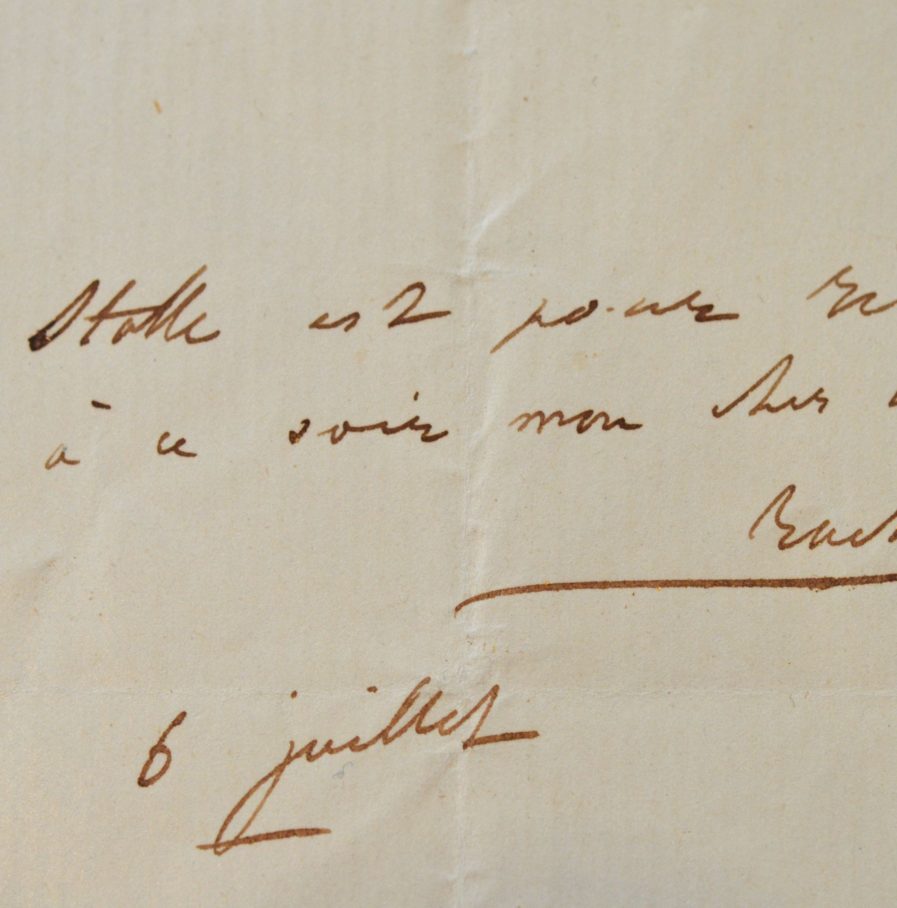 Stalle est pour
à ce soir mon cher
6 juillet